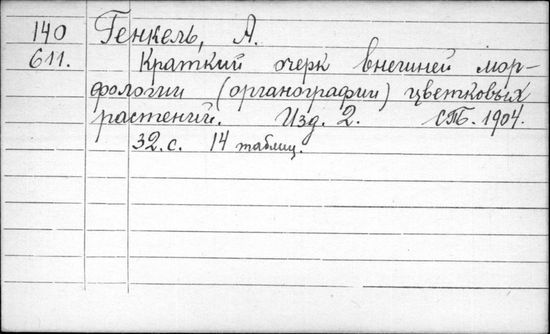 140 Генкель, А.
611. Краткий очерк внешней мор-
фологии (органографии) цветковых
растений. Изд. 2. СПБ. 1904.
32.с. 14 таблиц.